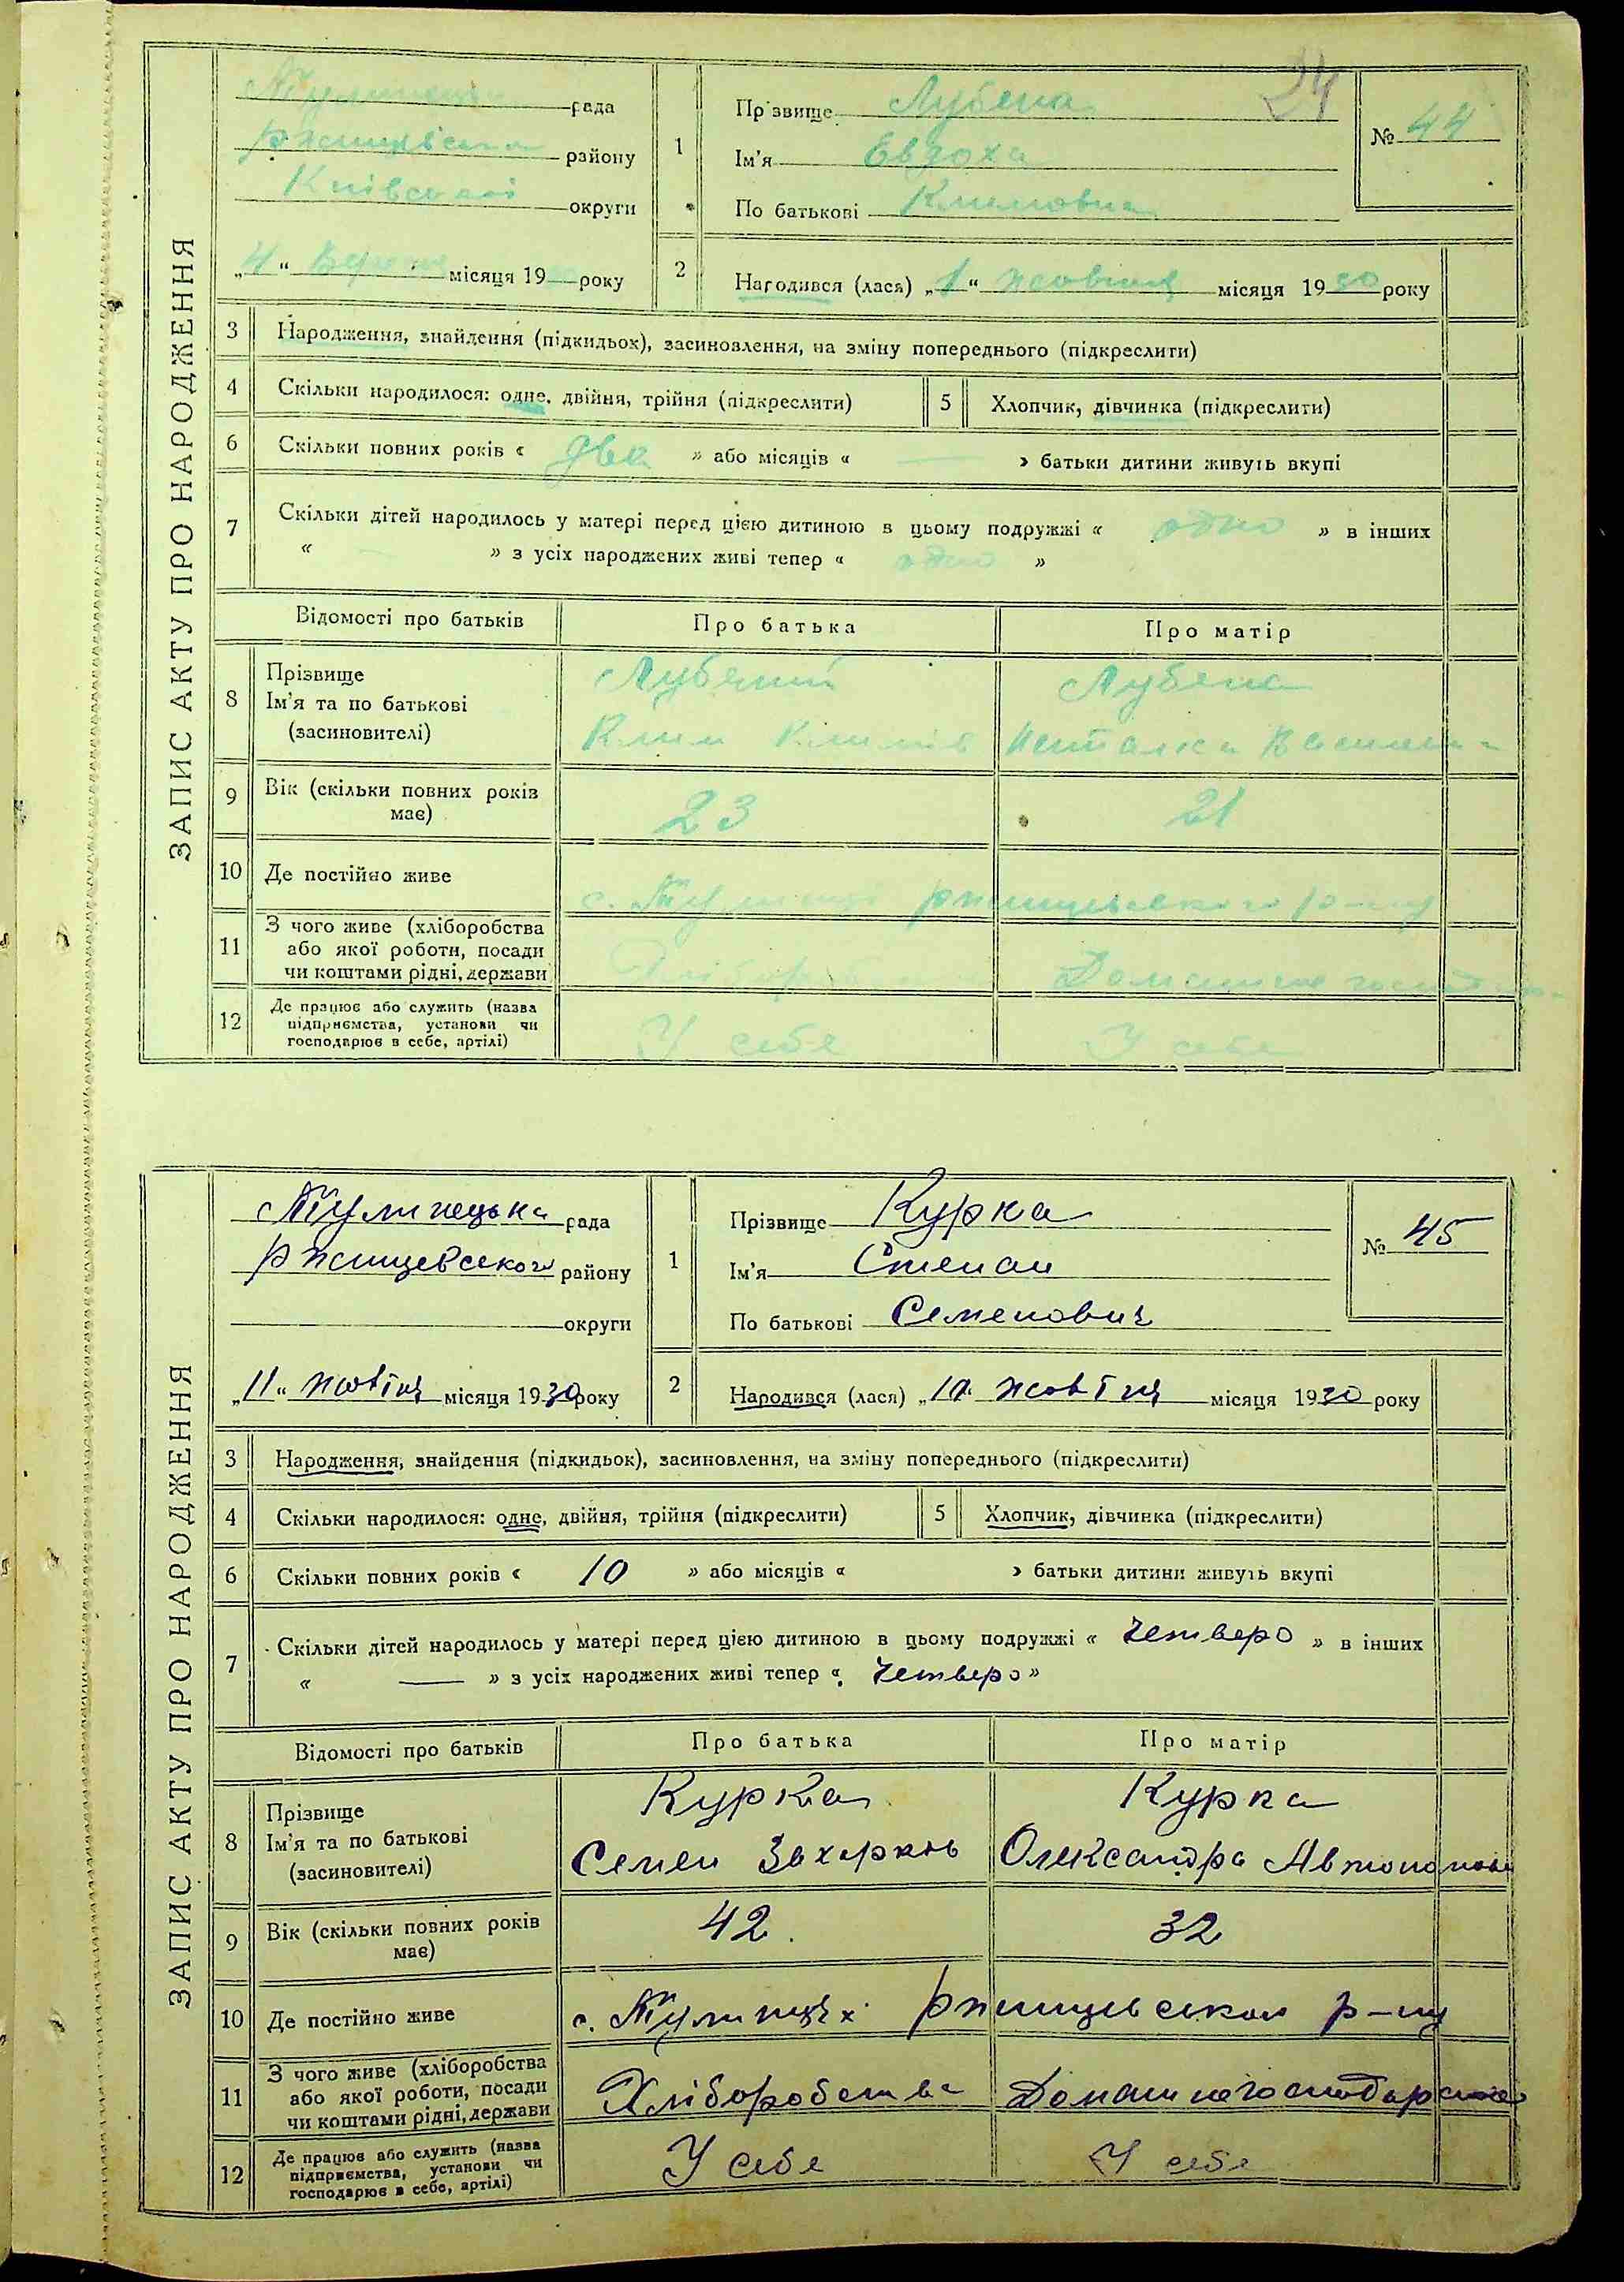 24
ЗАПИС АКТУ ПРО НАРОДЖЕННЯ
рада
району
Київської округи
„4“ місяця 19 року
1
Прізвище Лубена
Ім'я Евдоха
По батькові Климовна
№ 44
2
Народився (лася) „1“ жовтня місяця 1930 року
3 Народження, знайдення (підкидьох), засиновлення, на зміну попереднього (підкреслити)
4 Скільки народилося: одне, двійня, трійня (підкреслити)
5 Хлопчик, дівчинка (підкреслити)
6 Скільки повних років « два » або місяців « — » батьки дитини живуть вкупі
7 Скільки дітей народилось у матері перед цією дитиною в цьому подружжі « одно » в інших
« — » з усіх народжених живі тепер « одно »
Відомості про батьків Про батька Про матір
8 Прізвище Ім'я та по батькові (засиновителі)
Лубений Лубена
Клим Климів
9 Вік (скільки повних років має) 23 21
10 Де постійно живе
с.
11 З чого живе (хліборобства або якої роботи, посади чи коштами рідні, держави
Домашнє
12 Де працює або служить (назва підприємства, установи чи господарює в себе, артілі)
У себе У себе
ЗАПИС АКТУ ПРО НАРОДЖЕННЯ
Тулинецька рада
Ржищевського району
округи
„11“ жовтня місяця 1930 року
1
Прізвище Курка
Ім'я Степан
По батькові Семенович
№ 45
2
Народився (лася) „10“ жовтня місяця 1930 року
3 Народження, знайдення (підкидьок), засиновлення, на зміну попереднього (підкреслити)
4 Скільки народилося: одне, двійня, трійня (підкреслити)
5 Хлопчик, дівчинка (підкреслити)
6 Скільки повних років « 10 » або місяців « » батьки дитини живуть вкупі
7 Скільки дітей народилось у матері перед цією дитиною в цьому подружжі « четверо » в інших
« — » з усіх народжених живі тепер « четверо »
Відомості про батьків Про батька Про матір
8 Прізвище Ім'я та по батькові (засиновителі)
Курка Курка
Семен Захарков Олександра
9 Вік (скільки повних років має) 42 32
10 Де постійно живе
с. Тулинцях р-ну
11 З чого живе (хліборобства або якої роботи, посади чи коштами рідні, держави
Хліборобства
12 Де працює або служить (назва підприємства, установи чи господарює в себе, артілі)
У себе У себе